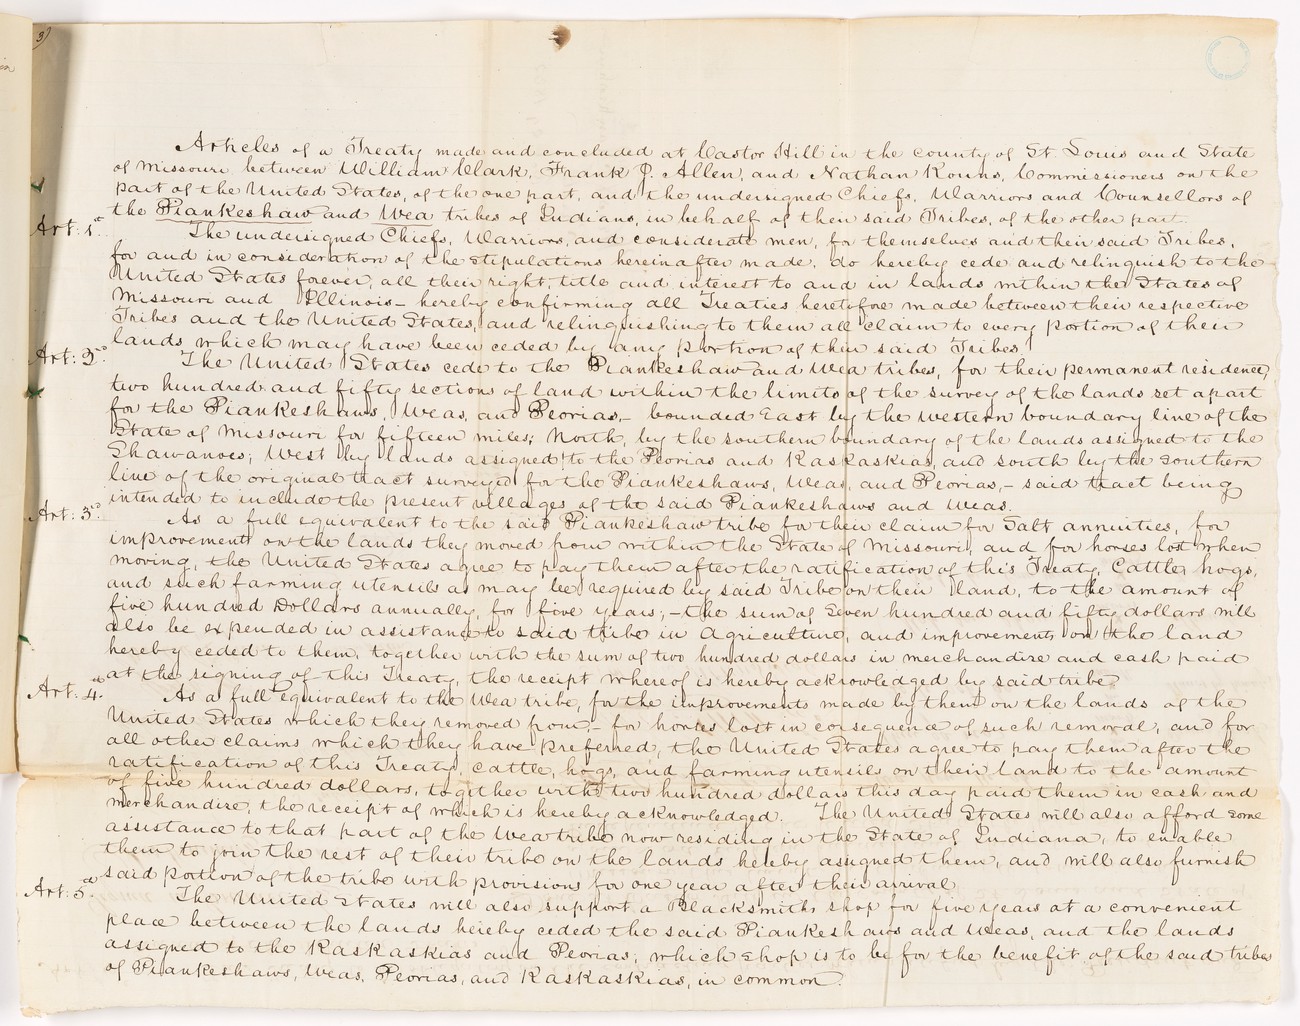 Articles of a Treaty made and concluded at Castor Hill in the county of St. Louis and State
of Missouri between William Clark, Frank J. Allen, and Nathan Kouns, Commissioners on the
part of the United States, of the one part, and the undersigned Chiefs, Warriors and Counsellors of
the Piankeshaw and Wea tribes of Indians, in behalf of their said Tribes, of the other part.
Art: 1st. The undersigned Chiefs, Warriors, and considerate men, for themselves and their said Tribes,
for and in consideration of the stipulations hereinafter made, do hereby cede and relinquish to the
United States forever, all their right, title and interest to and in lands within the States of
Missouri and Illinois – hereby confirming all Treaties heretofore made between their respective
Tribes and the United States, and relinquishing to them all claim to every portion of their
lands which may have been ceded by any portion of their said Tribes.
Art: 2d. The United States cede to the Piankeshaw and Wea tribes, for their permanent residence,
two hundred and fifty sections of land within the limits of the survey of the lands set apart
for the Piankeshaws, Weas, and Peorias, – bounded East by the western boundary line of the
State of Missouri for fifteen miles; North, by the southern boundary of the lands assigned to the
Shawanoes; West by lands assigned to the Peorias and Kaskaskias, and south by the southern
line of the original tract surveyed for the Piankeshaws, Weas, and Peorias, – said tract being
intended to include the present villages of the said Piankeshaws and Weas.
Art: 3d. As a full equivalent to the said Piankeshaw tribe for their claim for Salt annuities, for
improvements on the lands they moved from within the State of Missouri, and for horses lost when
moving, the United States agree to pay them after the ratification of this Treaty, Cattle, hogs,
and such farming utensils as may be required by said Tribe on their land, to the amount of
five hundred Dollars annually, for five years; – the sum of seven hundred and fifty dollars will
also be expended in assistance to said tribe in agriculture, and improvements on the land
hereby ceded to them, together with the sum of two hundred dollars in merchandize and cash paid
at the signing of this Treaty, the receipt whereof is hereby acknowledged by said tribe.
Art: 4th. As a full equivalent to the Wea tribe, for the improvements made by them on the lands of the
United States which they removed from, – for horses lost in consequence of such removal, and for
all other claims which they have preferred, the United States agree to pay them after the
ratification of this Treaty, cattle, hogs, and farming utensils on their land to the amount
of five hundred dollars, together with two hundred dollars this day paid them in cash and
merchandize, the receipt of which is hereby acknowledged. The United States will also afford some
assistance to that part of the Wea tribe now residing in the State of Indiana, to enable
them to join the rest of their tribe on the lands hereby assigned them, and will also furnish
said portion of the tribe with provisions for one year after their arrival.
Art: 5th. The United States will also support a Blacksmiths shop for five years at a convenient
place between the lands hereby ceded the said Piankeshaws and Weas, and the lands
assigned to the Kaskaskias and Peorias; which shop is to be for the benefit of the said tribes
of Piankeshaws, Weas, Peorias, and Kaskaskias, in common.